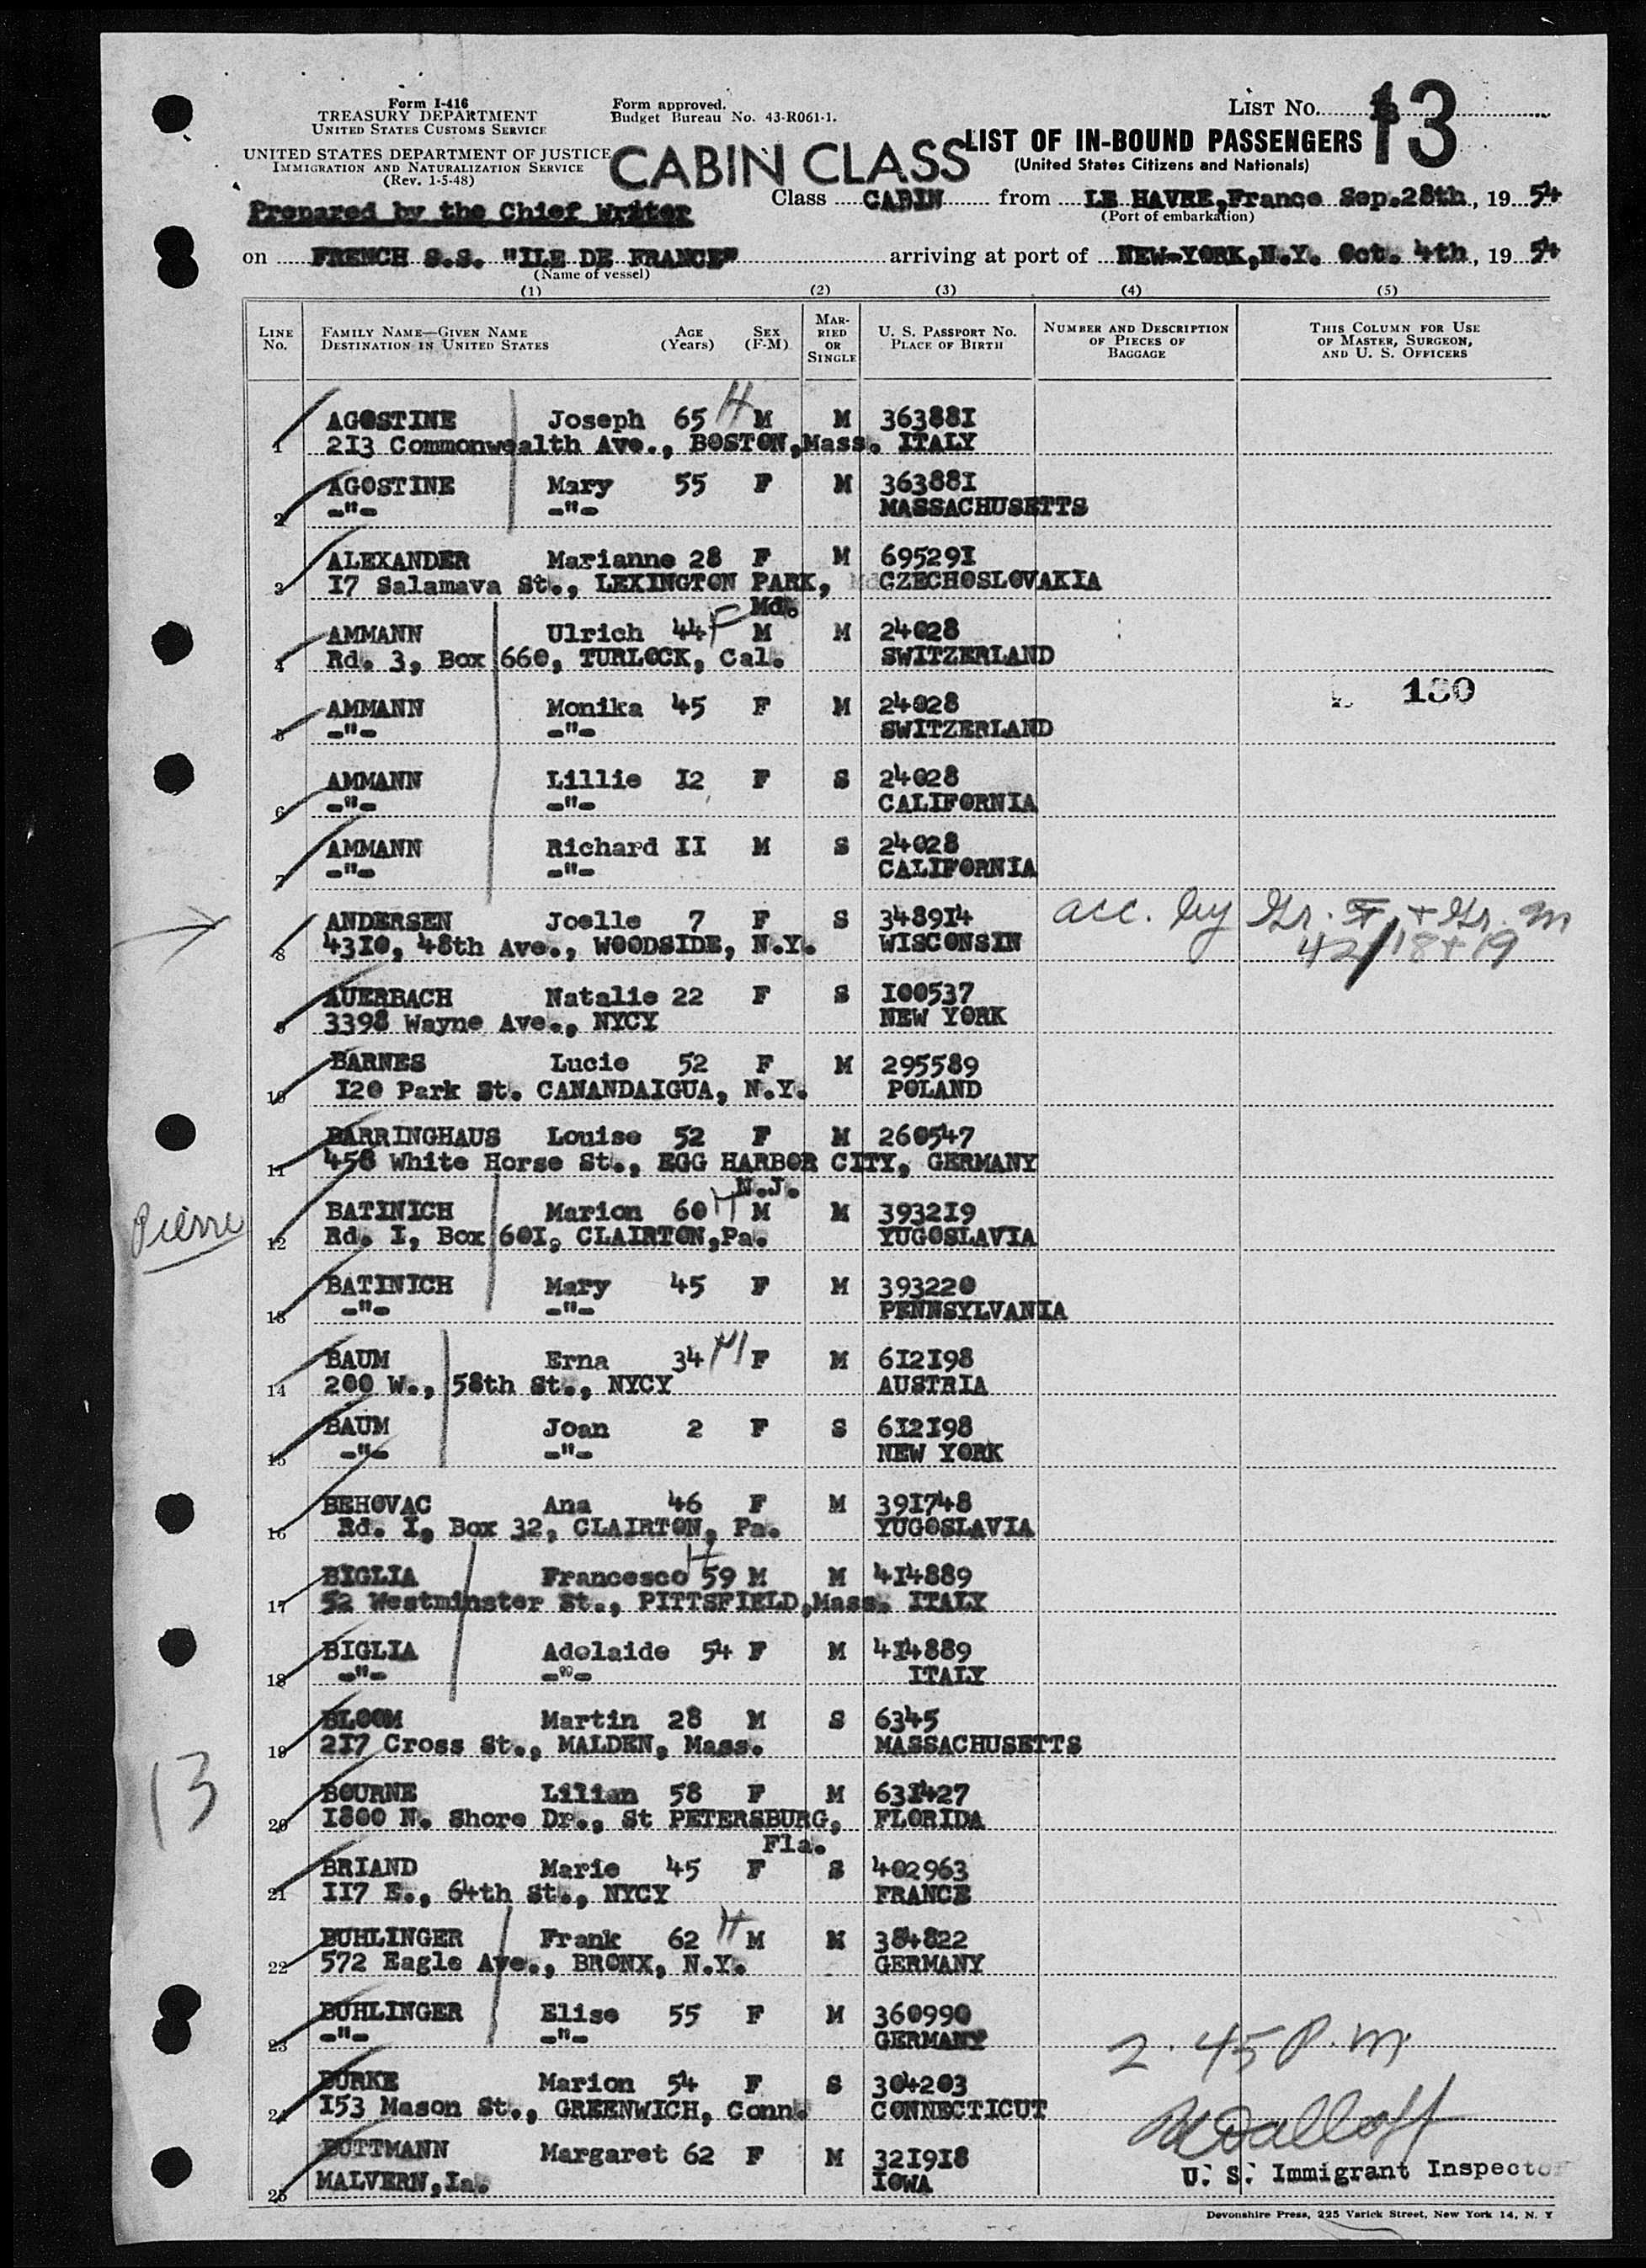 Form I-416
TREASURY DEPARTMENT
UNITED STATES CUSTOMS SERVICE
UNITED STATES DEPARTMENT OF JUSTICE
IMMIGRATION AND NATURALIZATION SERVICE
(Rev. 1-5-48)
Form approved.
Budget Bureau No. 43-R061-1.
LIST No. 13
CABIN CLASS
LIST OF IN-BOUND PASSENGERS
(United States Citizens and Nationals)
Prepared by the Chief Writer
Class CABIN from LE HAVRE,France Sep.28th, 1954
(Port of embarkation)
on FRENCH S.S. "ILE DE FRANCE" arriving at port of NEW-YORK,N.Y. Oct. 4th, 1954
(Name of vessel)
(1) (2) (3) (4) (5)
LINE No.
FAMILY NAME—GIVEN NAME
DESTINATION IN UNITED STATES
AGE (Years)
SEX (F-M)
MARRIED OR SINGLE
U. S. PASSPORT No.
PLACE OF BIRTH
NUMBER AND DESCRIPTION OF PIECES OF BAGGAGE
THIS COLUMN FOR USE OF MASTER, SURGEON, AND U. S. OFFICERS
AGOSTINE Joseph 65 H M M 363881
1 213 Commonwealth Ave., BOSTON,Mass. ITALY
AGOSTINE Mary 55 F M 363881
2 -"- -"- MASSACHUSETTS
ALEXANDER Marianne 28 F M 695291
3 17 Salamava St., LEXINGTON PARK, CZECHOSLOVAKIA
Md.
AMMANN Ulrich 44 F M M 24028
4 Rd. 3, Box 660, TURLOCK, Cal. SWITZERLAND
AMMANN Monika 45 F M 24028 130
5 -"- -"- SWITZERLAND
AMMANN Lillie I2 F S 24028
6 -"- -"- CALIFORNIA
AMMANN Richard II M S 24028
7 -"- -"- CALIFORNIA
ANDERSEN Joelle 7 F S 348914 acc. by Gr. F + Gr. m
8 4310, 48th Ave., WOODSIDE, N.Y. WISCONSIN 42/18+19
AUERBACH Natalie 22 F S 100537
9 3398 Wayne Ave., NYCY NEW YORK
BARNES Lucie 52 F M 295589
10 120 Park St. CANANDAIGUA, N.Y. POLAND
BARRINGHAUS Louise 52 F M 260547
11 458 White Horse St., EGG HARBOR CITY, GERMANY
N.J.
Pierre
BATINICH Marion 60 H M M 393219
12 Rd. I, Box 601, CLAIRTON,Pa. YUGOSLAVIA
BATINICH Mary 45 F M 393220
13 -"- -"- PENNSYLVANIA
BAUM Erna 34 M F M 612198
14 200 W., 58th St., NYCY AUSTRIA
BAUM Joan 2 F S 612198
15 -"- -"- NEW YORK
BEHOVAC Ana 46 F M 391748
16 Rd. I, Box 32, CLAIRTON, Pa. YUGOSLAVIA
BIGLIA Francesco H 59 M M 414889
17 52 Westminster St., PITTSFIELD,Mass. ITALY
BIGLIA Adelaide 54 F M 414889
18 -"- -"- ITALY
BLOOM Martin 28 M S 6345
19 217 Cross St., MALDEN, Mass. MASSACHUSETTS
13
BOURNE Lilian 58 F M 631427
20 1800 N. Shore Dr., St PETERSBURG, FLORIDA
Fla.
BRIAND Marie 45 F S 402963
21 117 E., 64th St., NYCY FRANCE
BUHLINGER Frank 62 H M M 384822
22 572 Eagle Ave., BRONX, N.Y. GERMANY
BUHLINGER Elise 55 F M 360990
23 -"- -"- GERMANY
2.45 P.m
BURKE Marion 54 F S 304203
24 153 Mason St., GREENWICH, Conn. CONNECTICUT
BUTTMANN Margaret 62 F M 321918
25 MALVERN,Ia. IOWA
U. S. Immigrant Inspector
Devonshire Press, 225 Varick Street, New York 14, N. Y